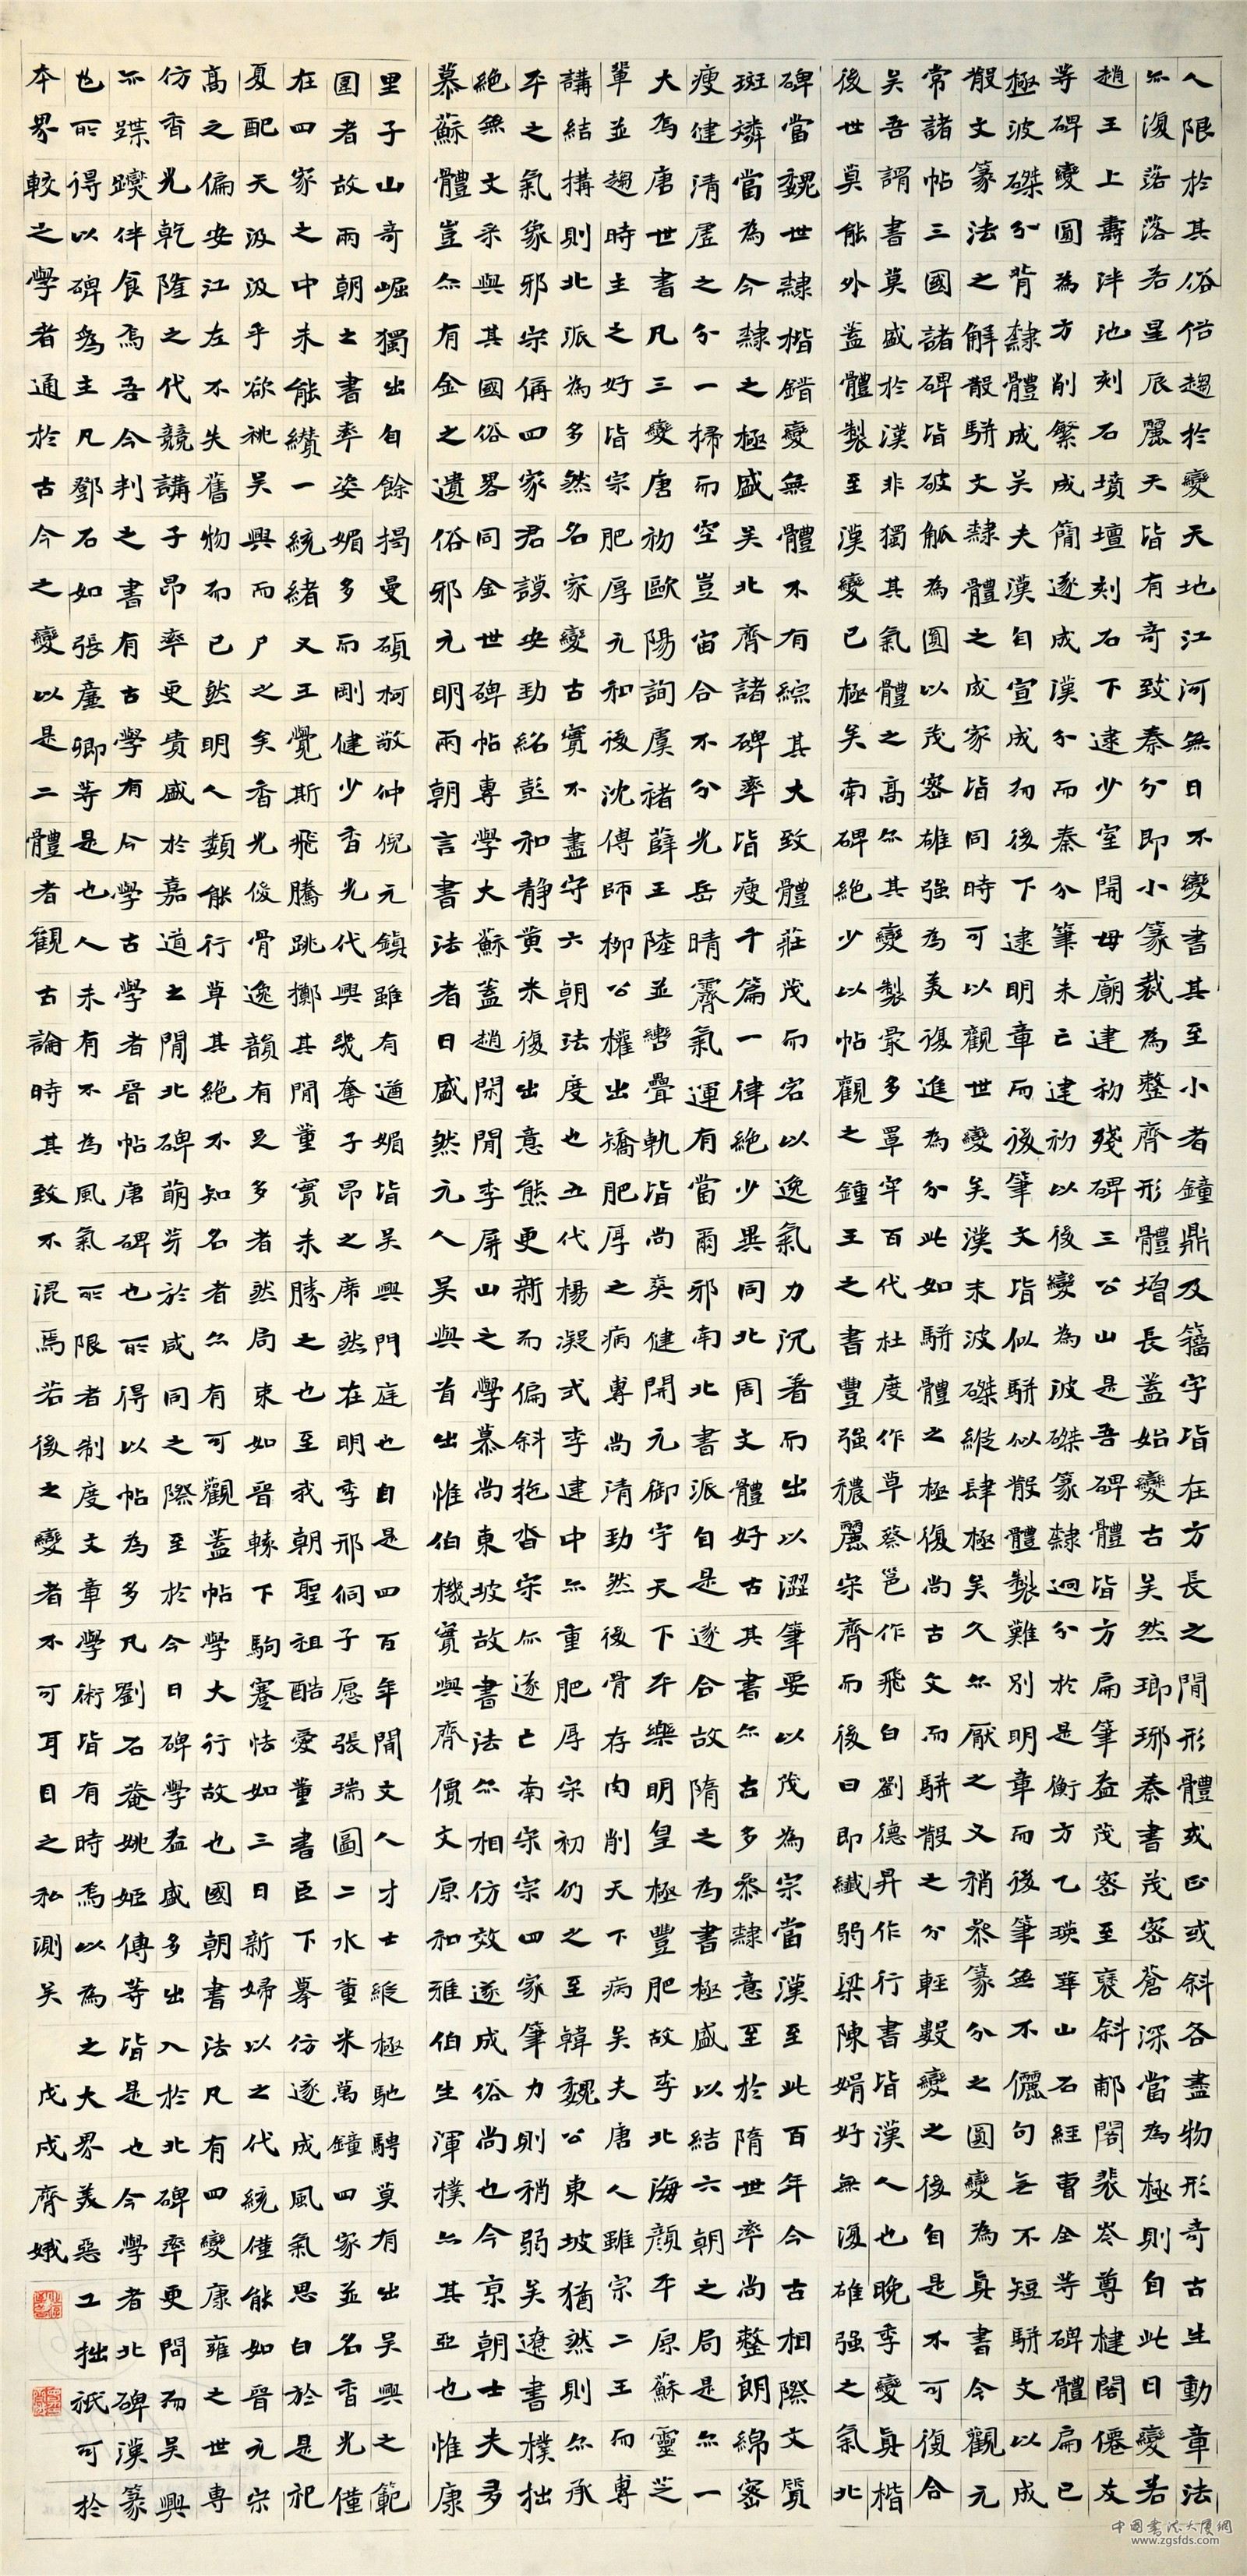 人限於其俗俗趨於變天地江河無日不變書其至小者鐘鼎及籀字皆在方長之間形體或正或斜各盡物形奇古生動章法
亦復落落若星辰麗天皆有奇致秦分即小篆裁為整齊形體增長蓋始變古矣然瑯琊秦書茂密蒼深當為極則自此日變若
趙王上壽泮池刻石墳壇刻石下逮少室開母廟建初殘碑三公山是吾碑體皆方扁筆益茂密至褒斜郙閣裴岑尊楗閣僊友
等碑變圓為方削繁成簡遂成漢分而秦分筆未亡建初以後變為波磔篆隸迥分於是衡方乙瑛華山石經曹全等碑體扁已
極波磔分背隸體成矣夫漢自宣成而後下逮明章而後筆文皆似駢似散體製難別明章而後筆無不儷句无不短駢文以成
散文篆法之解散駢文隸體之成家皆同時可以觀世變矣漢末波磔縱肆極矣久亦厭之又稍參篆分之圓變為真書今觀元
常諸帖三國諸碑皆破觚為圓以茂密雄強為美復進為分此如駢體之極復尚古文而駢散之分輕數變之後自是不可復合
矣吾謂書莫盛於漢非獨其氣體之高亦其變製最多罩牢百代杜度作草蔡邕作飛白劉德昇作行書皆漢人也晚季變真楷
後世莫能外蓋體製至漢變已極矣南碑絕少以帖觀之鍾王之書豐強穠麗宋齊而後日即纖弱梁陳娟好無復雄強之氣北
碑當魏世隸楷錯變無體不有綜其大致體莊茂而宕以逸氣力沉著而出以澀筆要以茂為宗當漢至此百年今古相際文質
斑璘當為今隸之極盛矣北齊諸碑率皆瘦千篇一律絕少異同北周文體好古其書亦古多參隸意至於隋世率尚整朗綿密
瘦健清虛之分一掃而空豈宙合不分光岳晴霽氣運有當爾邪南北書派自是遂合故隋之為書極盛以結六朝之局是亦一
大焉唐世書凡三變唐初歐陽詢虞褚薛王陸並轡疊軌皆尚爽健開元御宇天下平樂明皇極豐肥故李北海顏平原蘇靈芝
輩並趨時主之好皆宗肥厚元和後沈傅師柳公權出矯肥厚之病專尚清勁然後骨存肉削天下病矣夫唐人雖宗二王而專
講結搆則北派為多然名家變古實不盡守六朝法度也五代楊凝式李建中亦重肥厚宋初仍之至韓魏公東坡猶然則亦承
平之氣象邪宋偁四家君謨安勁紹彭和靜黃米復出意態更新而偏斜拖沓宋亦遂亡南宋宗四家筆力則稍弱矣遼書樸拙
絕無文采與其國俗畧同金世碑帖專學大蘇蓋趙閑閒李屏山之學慕尚東坡故書法亦相仿效遂成俗尚也今京朝士夫多
慕蘇體豈亦有金之遺俗邪元明兩朝言書法者日盛然元人吳興首出惟伯機實與齊價文原和雅伯生渾樸亦其亞也惟康
里子山奇崛獨出自餘揭曼碩柯敬仲倪元鎮雖有遒媚皆吳興門庭也自是四百年間文人才士縱極馳騁莫有出吳興之範
圍者故兩朝士書率姿媚多而剛健少香光代興幾奪子昂之席然在明季邢侗子愿張瑞圖二水董米萬鐘四家並名香光僅
在四家之中未能纘一統緒又王覺斯飛騰跳擲其間董實未勝之也至我朝聖祖酷愛董書臣下摹仿遂成風氣思白於是祀
夏配天汲汲乎欲祧吳興而尸之矣香光俊骨逸韻有足多者然局束如晉轅下駒蹇怯如三日新婦以之代統僅能如晉元宋
高之偏安江左不失舊物而已然明人類能行草其絕不知名者亦有可觀蓋帖學大行故也國朝書法凡有四變康雍之世專
仿香光乾隆之代競講子昂率更貴盛於嘉道之間北碑萌芽於咸同之際至於今日碑學益盛多出入於北碑率更間而吳興
亦蹀躞伴食焉吾今判之書有古學有今學古學者晉帖唐碑也所得以帖為多凡劉石菴姚姬傳等皆是也今學者北碑漢篆
也所得以碑為主凡鄧石如張廉卿等是也人未有不為風氣所限者制度文章學術皆有時焉以為之大界美惡工拙祇可於
本界較之學者通於古今之變以是二體者觀古論時其致不混焉若後之變者不可耳目之私測矣 戊戌齊娥
中國書法大廈網
www.zgsfds.com